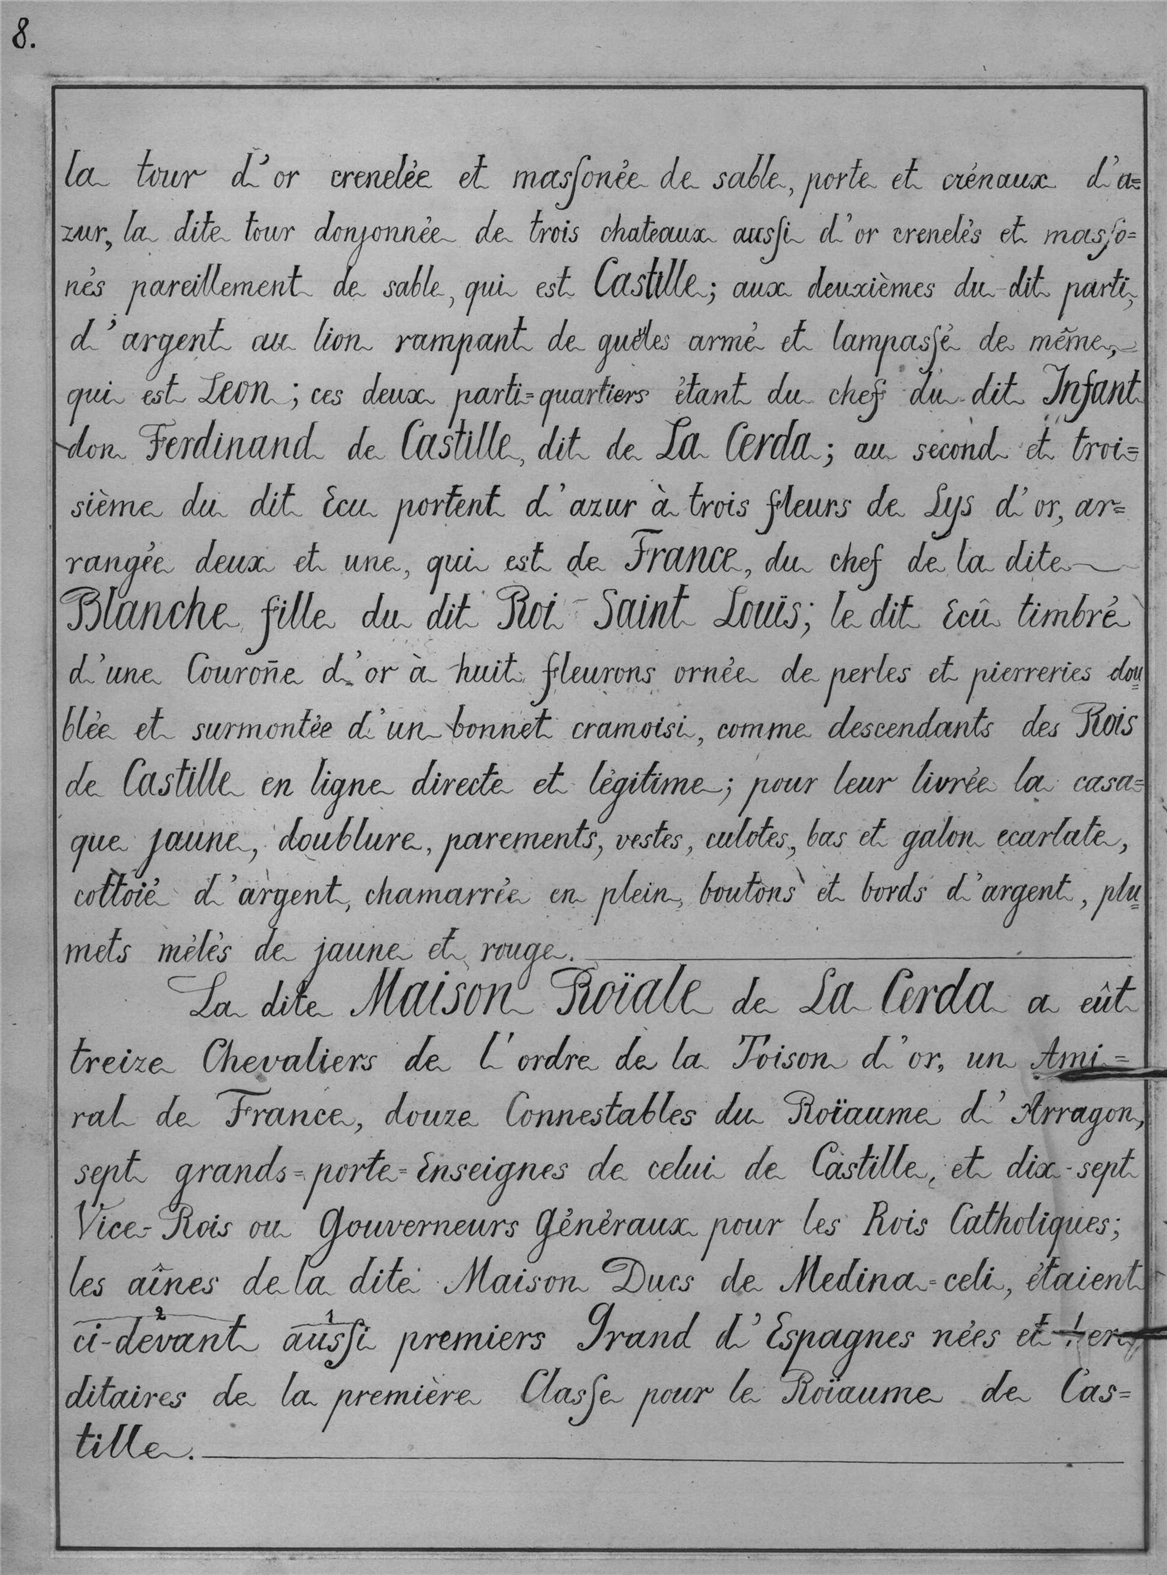 8.
la tour d'or crenelée et masſonée de sable, porte et crénaux d'a=
zur, la dite tour donjonnée de trois chateaux auſsi d'or crenelés et masſo=
nés pareillement de sable, qui est Castille; aux deuxièmes du dit parti,
d'argent au lion rampant de guëles armé et lampasſé de même,
qui est Leon; ces deux parti=quartiers étant du chef du dit Infant
don Ferdinand de Castille, dit de La Cerda; au second et troi=
sième du dit Ecu portent d'azur à trois fleurs de Lys d'or, ar=
rangée deux et une, qui est de France, du chef de la dite
Blanche fille du dit Roi Saint Louïs; le dit Ecû timbré
d'une Couroñe d'or à huit fleurons ornée de perles et pierreries dou=
blée et surmontée d'un bonnet cramoisi, comme descendants des Rois
de Castille en ligne directe et légitime; pour leur livrée la casa=
que jaune, doublure, parements, vestes, culotes, bas et galon ecarlate,
cottoié d'argent, chamarrée en plein, boutons et bords d'argent, plu=
mets mêlés de jaune et rouge.
La dite Maison Roïale de La Cerda a eût
treize Chevaliers de L'ordre de la Toison d'or, un Ami=
ral de France, douze Connestables du Roïaume d'Arragon,
sept grands=porte=Enseignes de celui de Castille, et dix-sept
Vice-Rois ou Gouverneurs Généraux pour les Rois Catholiques;
les aînes de la dite Maison Ducs de Medina=celi, étaient
2 1
ci-devant ausſi premiers Grand d'Espagnes nées et here=
ditaires de la première Claſse pour le Roïaume de Cas=
tille.